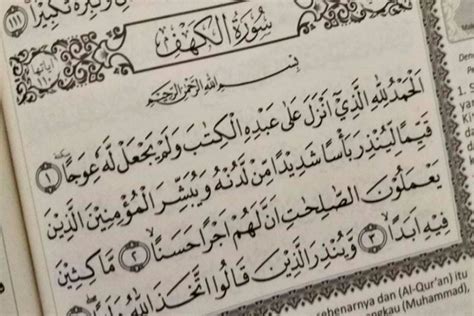 وَكَبِّرْهُ تَكْبِيْرًا ࣖ ١١١
سُوْرَةُ الْكَهْفِ
اٰياتها ١١٠
بِسْمِ اللّٰهِ الرَّحْمٰنِ الرَّحِيْمِ
اَلْحَمْدُ لِلّٰهِ الَّذِيْٓ اَنْزَلَ عَلٰى عَبْدِهِ الْكِتٰبَ وَلَمْ يَجْعَلْ لَّهٗ عِوَجًا ۜ ١
قَيِّمًا لِّيُنْذِرَ بَأْسًا شَدِيْدًا مِّنْ لَّدُنْهُ وَيُبَشِّرَ الْمُؤْمِنِيْنَ الَّذِيْنَ
يَعْمَلُوْنَ الصّٰلِحٰتِ اَنَّ لَهُمْ اَجْرًا حَسَنًا ٢ مَّاكِثِيْنَ
فِيْهِ اَبَدًا ٣ وَّيُنْذِرَ الَّذِيْنَ قَالُوا اتَّخَذَ اللّٰهُ وَلَدًا
1. S
sebenarnya dan (Al-Qur'an) itu
engkau (Muhammad),